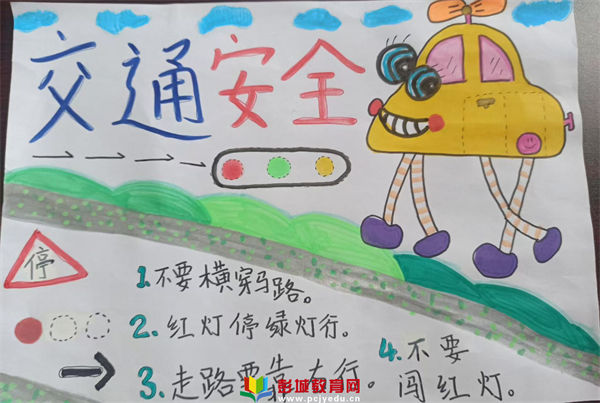 交通安全
停
1.不要横穿马路。
2.红灯停绿灯行。
3.走路要靠 行。
4.不要
闯红灯。
彭城教育网
www.pcjyedu.cn